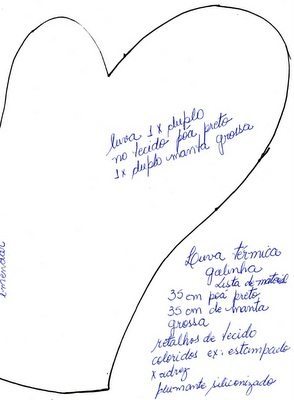 luva 1x duplo
no tecido poá preto
1x duplo manta grossa
emendar
Luva térmica
galinha
Lista de material
35 cm poá preto
35 cm de manta
grossa
retalhos de tecido
coloridos ex: estampado
xadrez
plumante siliconizado